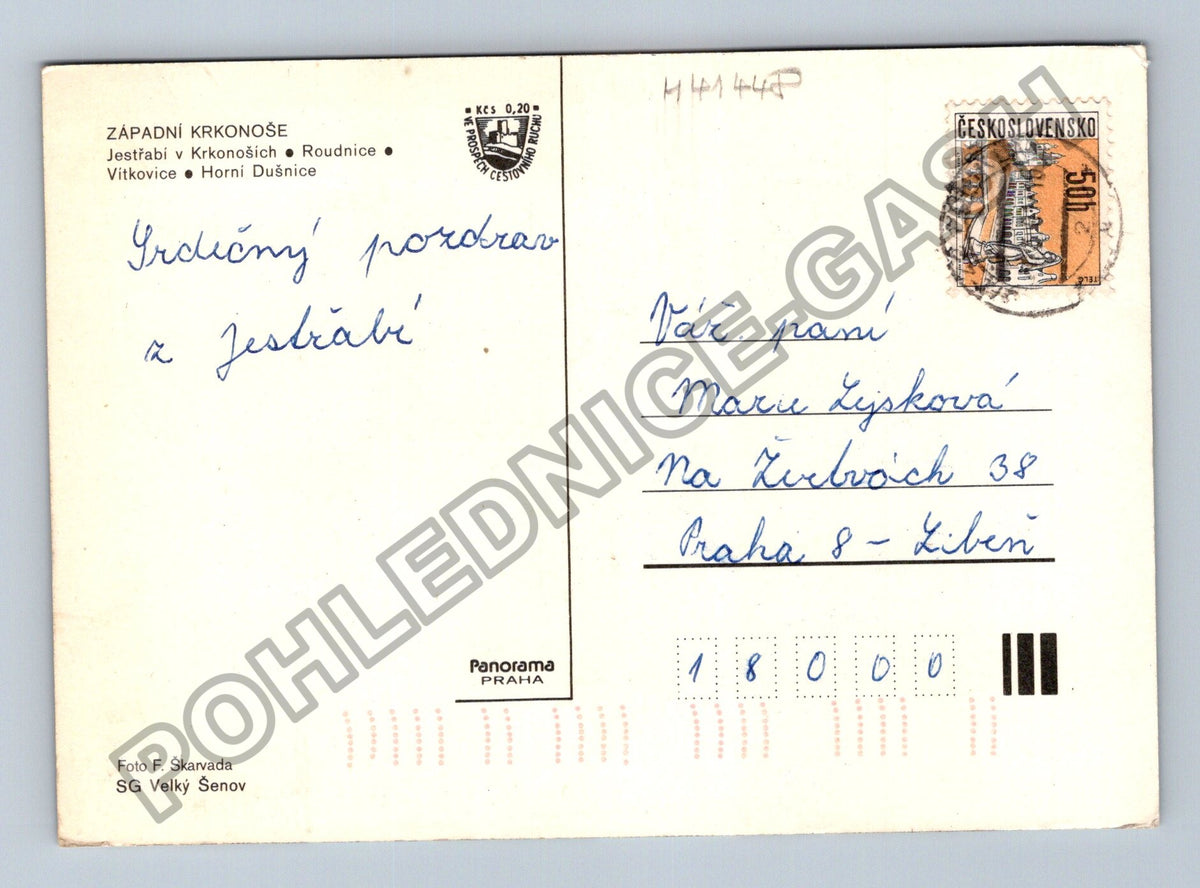 ZÁPADNÍ KRKONOŠE
Jestřabí v Krkonoších ● Roudnice ●
Vítkovice ● Horní Dušnice
Kčs 0,20
VE PROSPĚCH CESTOVNÍHO RUCHU
Srdečný pozdrav
z Jestřabí
H41448
ČESKOSLOVENSKO
50h
TELČ
Váž paní
Marie Lysková
Na Žertvách 38
Praha 8 – Libeň
18000
Panorama
PRAHA
Foto F. Škarvada
SG Velký Šenov
POHLEDNICE-GASH